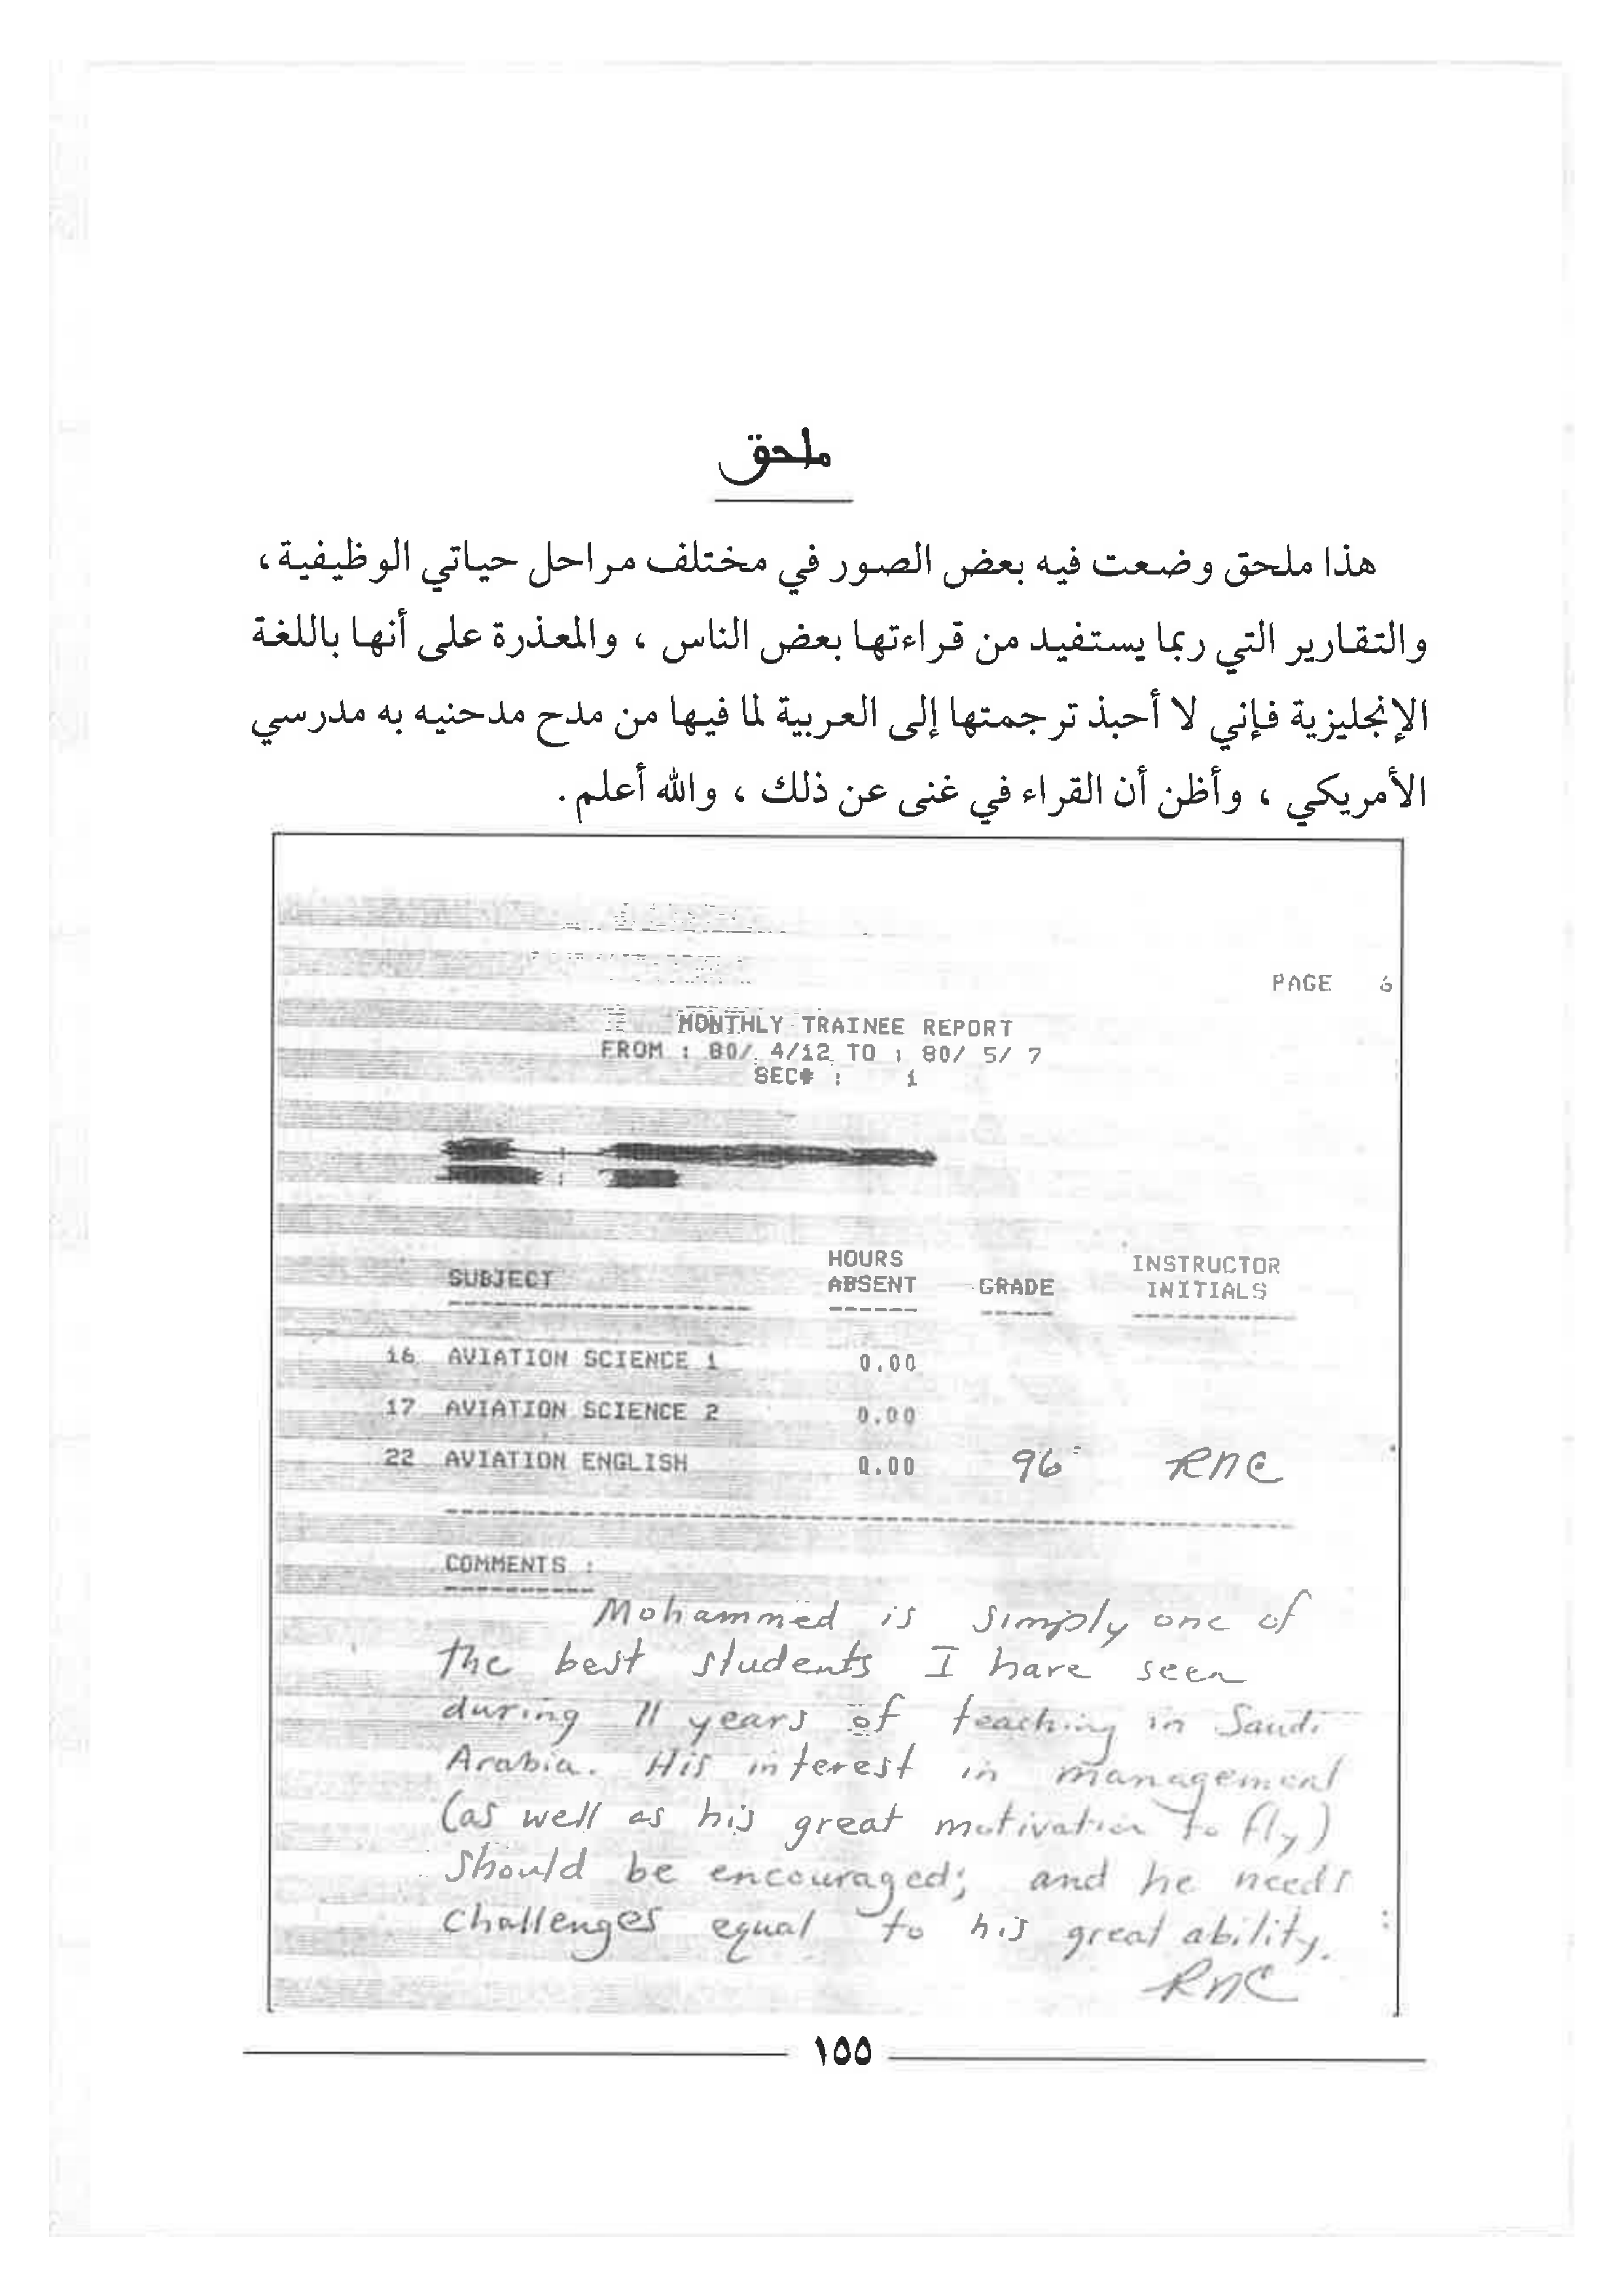 ملحق
هذا ملحق وضعت فيه بعض الصور في مختلف مراحل حياتي الوظيفية ،
والتقارير التي ربما يستفيد من قراءتها بعض الناس ، والمعذرة على أنها باللغة
الإنجليزية فإني لا أحبذ ترجمتها إلى العربية لما فيها من مدح مدحنيه به مدرسي
الأمريكي ، وأظن أن القراء في غنى عن ذلك ، والله أعلم .
PAGE 6
MONTHLY TRAINEE REPORT
FROM : 80/ 4/12 TO : 80/ 5/ 7
SEC# : 1
SUBJECT HOURS ABSENT GRADE INSTRUCTOR INITIALS
16 AVIATION SCIENCE 1 0.00
17 AVIATION SCIENCE 2 0.00
22 AVIATION ENGLISH 0.00 96 RNC
COMMENTS :
Mohammed is simply one of
the best students I have seen
during 11 years of teaching in Saudi
Arabia. His interest in management
(as well as his great motivation to fly)
should be encouraged; and he needs
challenges equal to his great ability.
RNC
١٥٥